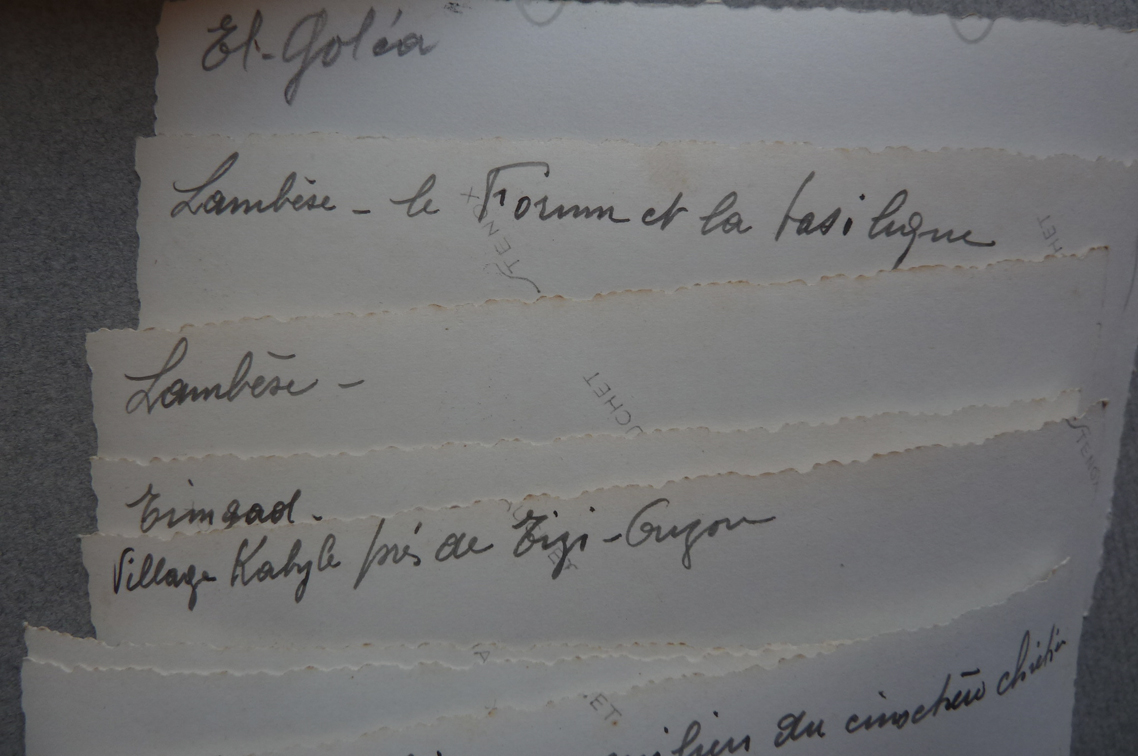 El-Goléa
Lambèse - le Forum et la basilique
Lambèse -
Timgad.
Village Kabyle près de Tizi-Ouzou
du cimetière chrétien